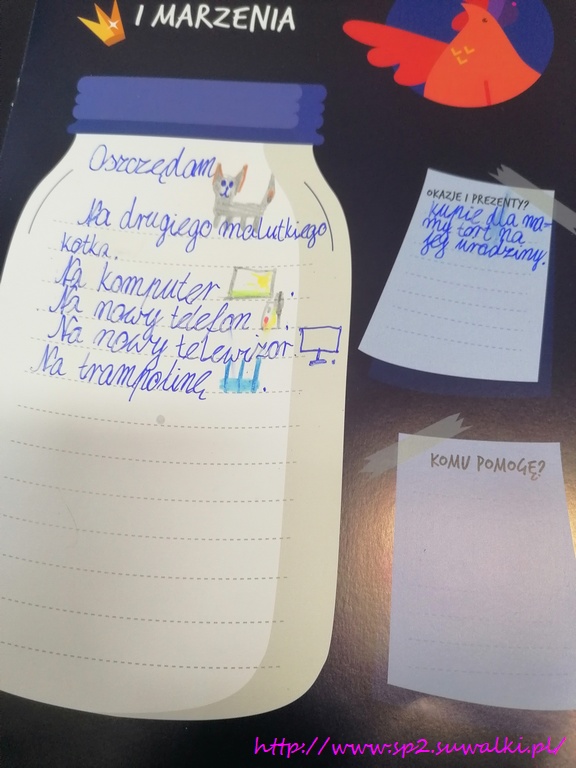 I MARZENIA
Oszczędam
Na drugiego malutkiego
kotka.
Na komputer .
Na nowy telefon .
Na nowy telewizor .
Na trampolinę .
OKAZJE I PREZENTY?
kupię dla ma-
my tort na
jej urodziny.
KOMU POMOGĘ?
http://www.sp2.suwalki.pl/